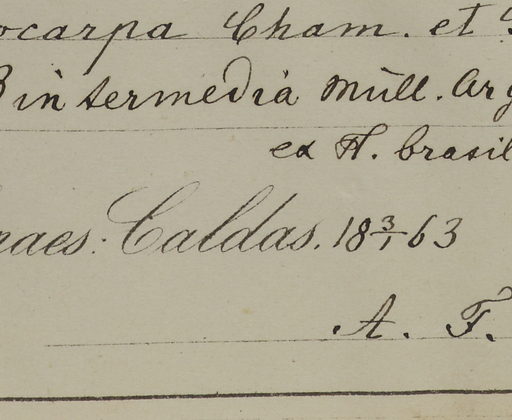 ocarpa Cham. et
β intermedia Müll. Arg
ex Fl. brasil
naes: Caldas. 18 3/1 63
A. F.